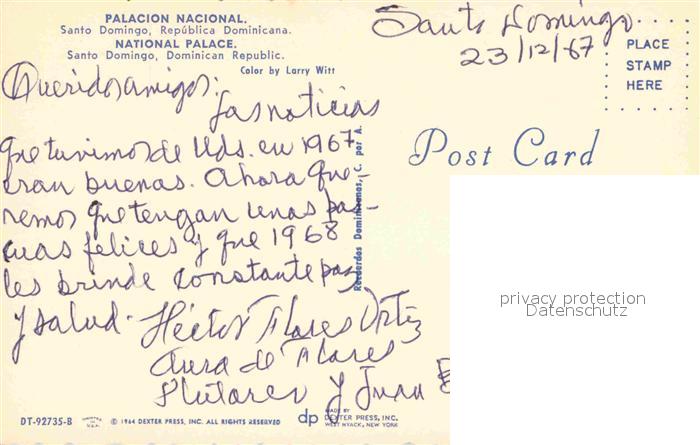 PALACION NACIONAL.
Santo Domingo, República Dominicana.
NATIONAL PALACE.
Santo Domingo, Dominican Republic.
Color by Larry Witt
Santo Domingo
23/12/67
PLACE
STAMP
HERE
Queridos amigos:
Las noticias
que tuvimos de Uds. en 1967
eran buenas. Ahora que-
remos que tengan unas pas-
cuas felices y que 1968
les brinde constante paz
y salud.
Héctor Flores Ortiz
Aura de Flores
y Juan
Post Card
Recuerdos Dominicanos, C. por A.
privacy protection
Datenschutz
DT-92735-B
© 1964 DEXTER PRESS, INC. ALL RIGHTS RESERVED
dp
MADE BY
DEXTER PRESS, INC.
WEST NYACK, NEW YORK